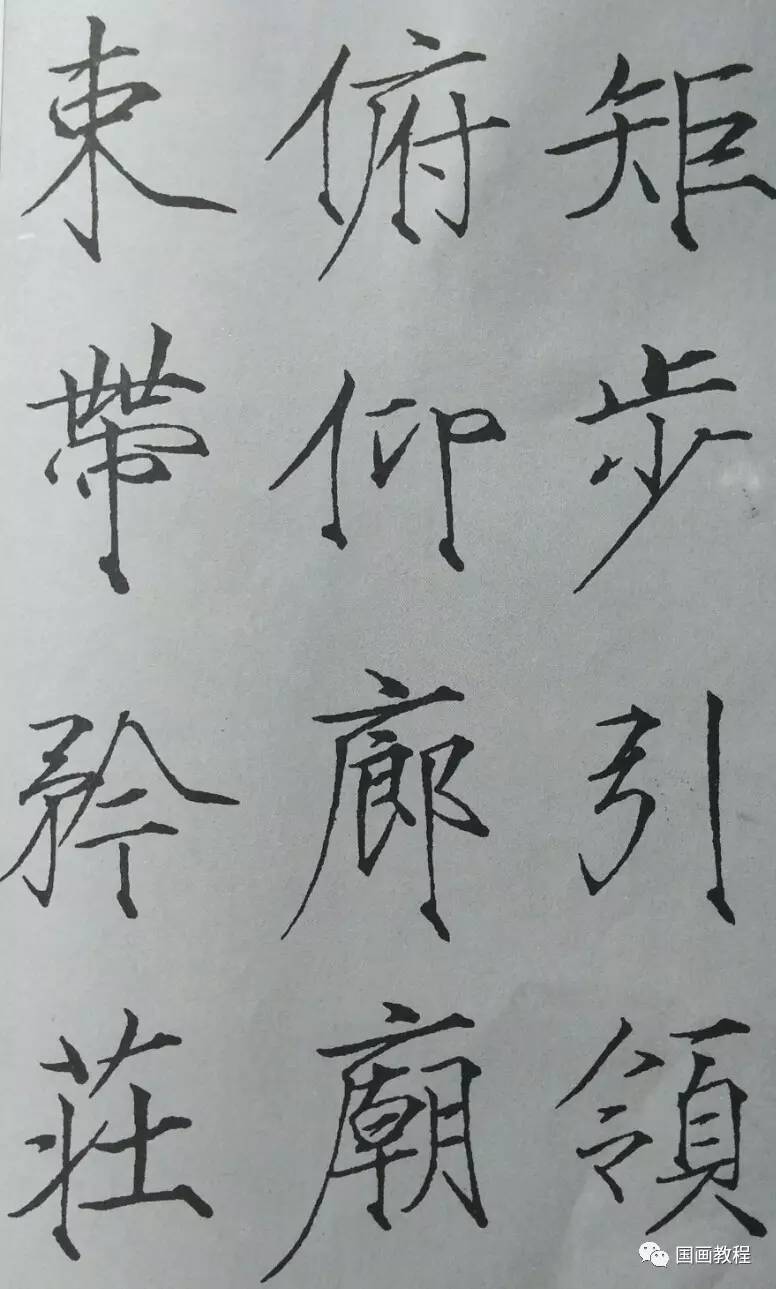 矩步引領
俯仰廊廟
束帶矜莊
国画教程